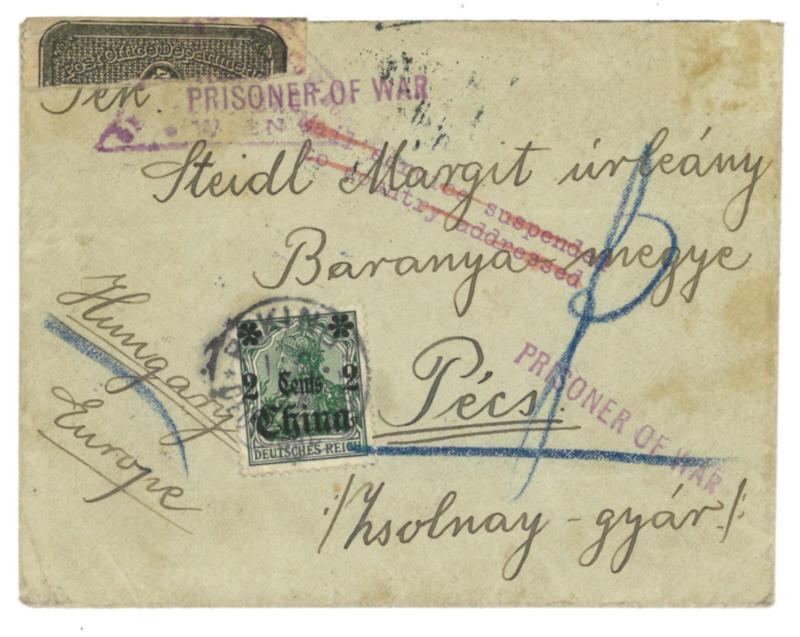 Post Office Department
Tek.
PRISONER OF WAR
Steidl Márgit úrleány
Mail service suspended
to country addressed
Baranya-megye
Hungary
Europe
PEKING
2 Cents 2
China
DEUTSCHES REICH
Pécs.
PRISONER OF WAR
/:Zsolnay-gyár:/